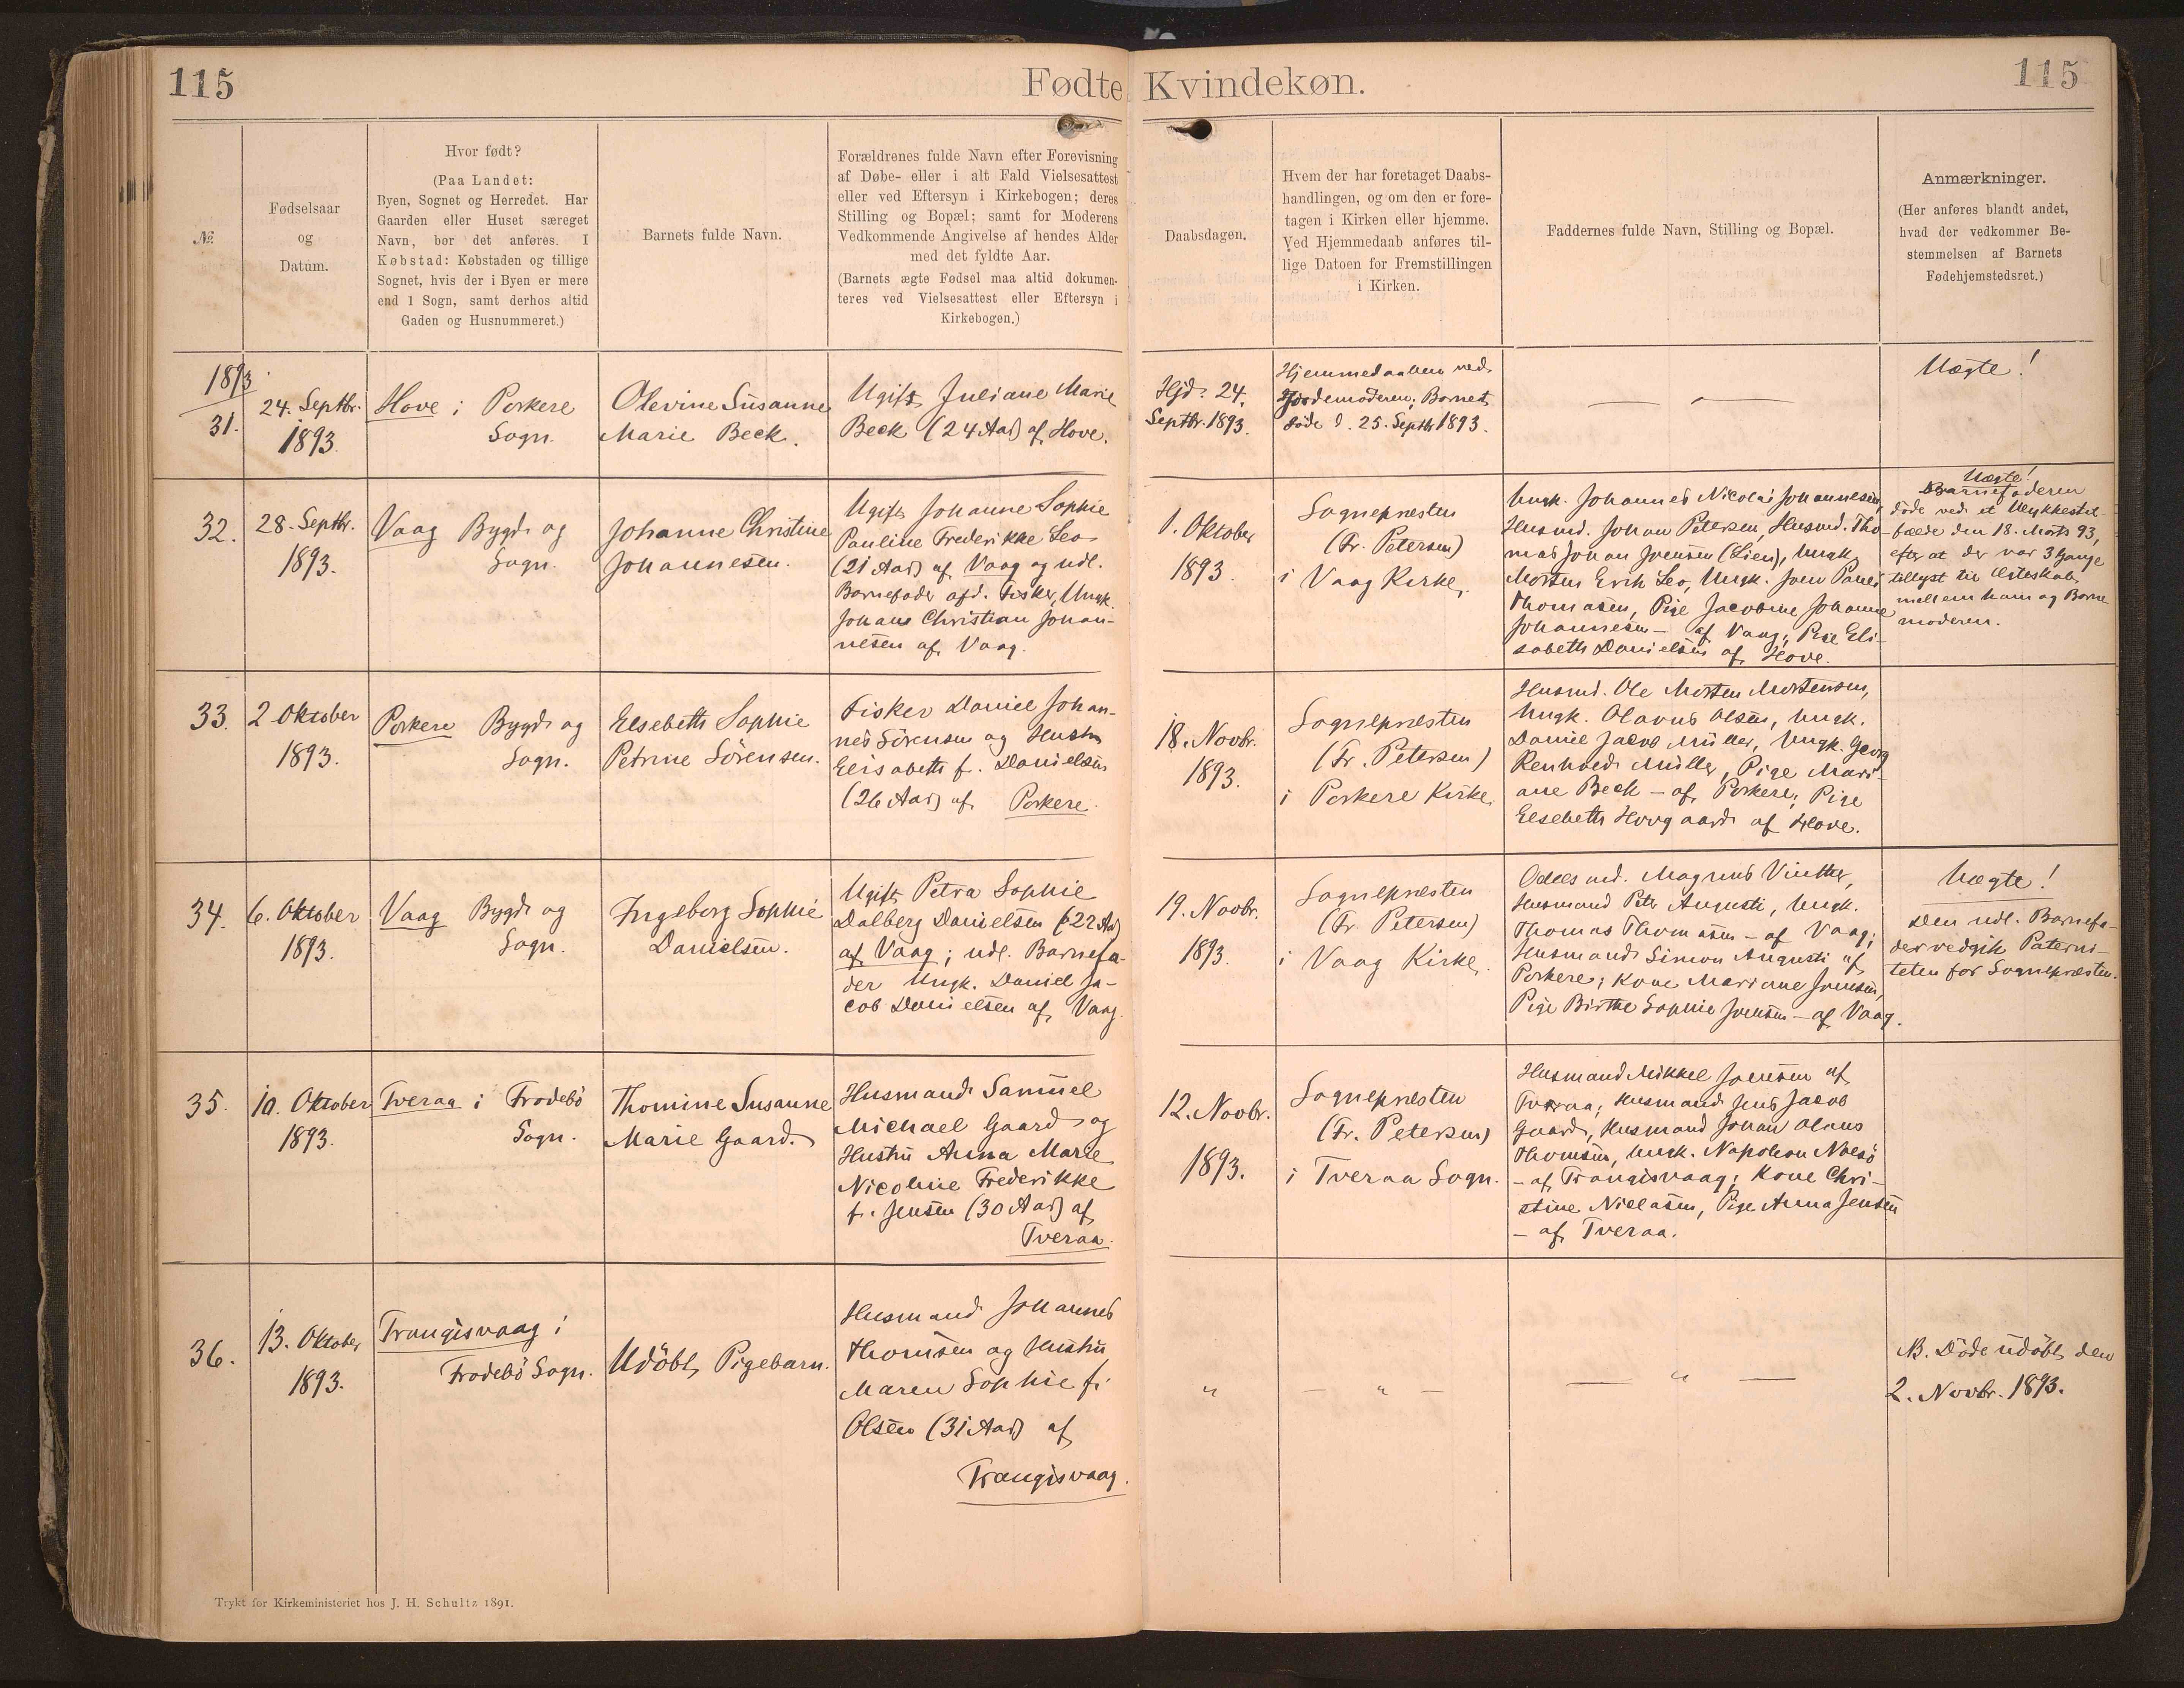 115
Fødte Kvindekøn.
115
№
Fødselsaar
og
Datum.
Hvor født?
(Paa Landet:
Byen, Sognet og Herredet. Har
Gaarden eller Huset særeget
Navn, bør det anføres. I
Købstad: Købstaden og tillige
Sognet, hvis der i Byen er mere
end 1 Sogn, samt derhos altid
Gaden og Husnummeret.)
Barnets fulde Navn.
Forældrenes fulde Navn efter Forevisning
af Døbe- eller i alt Fald Vielsesattest
eller ved Eftersyn i Kirkebogen; deres
Stilling og Bopæl; samt for Moderens
Vedkommende Angivelse af hendes Alder
med det fyldte Aar.
(Barnets ægte Fødsel maa altid dokumen-
teres ved Vielsesattest eller Eftersyn i
Kirkebogen.)
Daabsdagen.
Hvem der har foretaget Daabs-
handlingen, og om den er fore-
tagen i Kirken eller hjemme.
Ved Hjemmedaab anføres til-
lige Datoen for Fremstillingen
i Kirken.
Faddernes fulde Navn, Stilling og Bopæl.
Anmærkninger.
(Her anføres blandt andet,
hvad der vedkommer Be-
stemmelsen af Barnets
Fødehjemstedsret.)
1893
31.
24. Septbr.
1893.
Hove i Porkere
Sogn.
Olevine Susanne
Marie Beck.
Ugift Juliane Marie
Beck (24 Aar) af Hove.
Hjd. 24.
Septbr. 1893.
Hjemmedaaben ved
Jordemoderen; Barnet
døde d. 25. Septbr 1893.
— —
Uægte!
32.
28. Septbr.
1893.
Vaag Bygd og
Sogn.
Johanne Christine
Johannesen.
Ugift Johanne Sophie
Pauline Frederikke Leo
(21 Aar) af Vaag og udl.
Barnefader afd. Fisker, Ungk.
Johans Christian Johan-
nesen af Vaag.
1. Oktober
1893.
Sognepræsten
(Fr. Petersen)
i Vaag Kirke.
Ungk. Johannes Nicolai Johannesen,
Husmd. Johan Petersen, Husmd. Tho-
mas Johan Joensen (Lien), Ungk.
Morten Erik Leo, Ungk. Joen Pauli
Thomasen, Pige Jacobine Johanne
Johannesen — af Vaag; Pige Eli-
sabeth Danielsen af Hove.
Uægte!
Barnefaderen
døde ved et Ulykkestil-
fælde den 18. Marts 93,
efter at der var 3 Gange
tillyst til Ægteskab
mellem ham og Barne
moderen.
33.
2 Oktober
1893.
Porkere Bygd og
Sogn.
Elsebeth Sophie
Petrine Sörensen.
Fisker Daniel Johan-
nes Sörensen og Hustru
Elisabeth f. Danielsen
(26 Aar) af Porkere.
18. Novbr.
1893.
Sognepræsten
(Fr. Petersen)
i Porkere Kirke.
Husmd. Ole Morten Mortensen,
Ungk. Olavus Olsen, Ungk.
Daniel Jacob Müller, Ungk. Georg
Renhold Müller, Pige Mari-
ane Beck — af Porkere; Pige
Elsebeth Hovgaard af Hove.
34.
6. Oktober
1893.
Vaag Bygd og
Sogn.
Ingeborg Sophie
Danielsen.
Ugift Petra Sophie
Dalberg Danielsen (22 Aar)
af Vaag; udl. Barnefa-
der Ungk. Daniel Ja-
cob Danielsen af Vaag.
19. Novbr.
1893.
Sognepræsten
(Fr. Petersen)
i Vaag Kirke.
Odelsmd. Magnus Vinther,
Husmand Peter Augusti, Ungk.
Thomas Thomasen — af Vaag;
Husmand Simon Augusti af
Porkere; Kone Mariane Joensen,
Pige Birthe Sophie Joensen — af Vaag.
Uægte!
Den udl. Barnefa-
der vedgik Paterni-
teten for Sognepræsten.
35.
10. Oktober
1893.
Tveraa i Frodebö
Sogn.
Thomine Susanne
Marie Gaard.
Husmand Samuel
Michael Gaard og
Hustru Anna Marie
Nicoline Frederikke
f. Jensen (30 Aar) af
Tveraa.
12. Novbr.
1893.
Sognepræsten
(Fr. Petersen)
i Tveraa Sogn.
Husmand Mikkel Joensen af
Tveraa; Husmand Jens Jacob
Gaard, Husmand Johan Olaus
Thomsen, Ungk. Napoleon Nolsö
— af Trangisvaag; Kone Chri-
stine Niclasen, Pige Anna Jensen
— af Tveraa.
36.
13. Oktober
1893.
Trangisvaag i
Frodebö Sogn.
Udöbt Pigebarn.
Husmand Johannes
Thomsen og Hustru
Maren Sophie f.
Olsen (31 Aar) af
Trangisvaag.
"
— " —
— " —
B. Döde udöbt den
2. Novbr. 1893.
Trykt for Kirkeministeriet hos J. H. Schultz 1891.